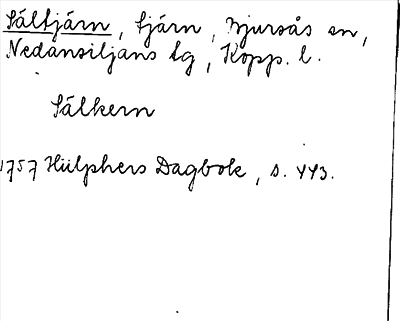 Sältjärn, tjärn, Bjursås sn,
Nedansiljans tg, Kopp. l.
Sälkern
1757 Hülphers Dagbok, s. 443.